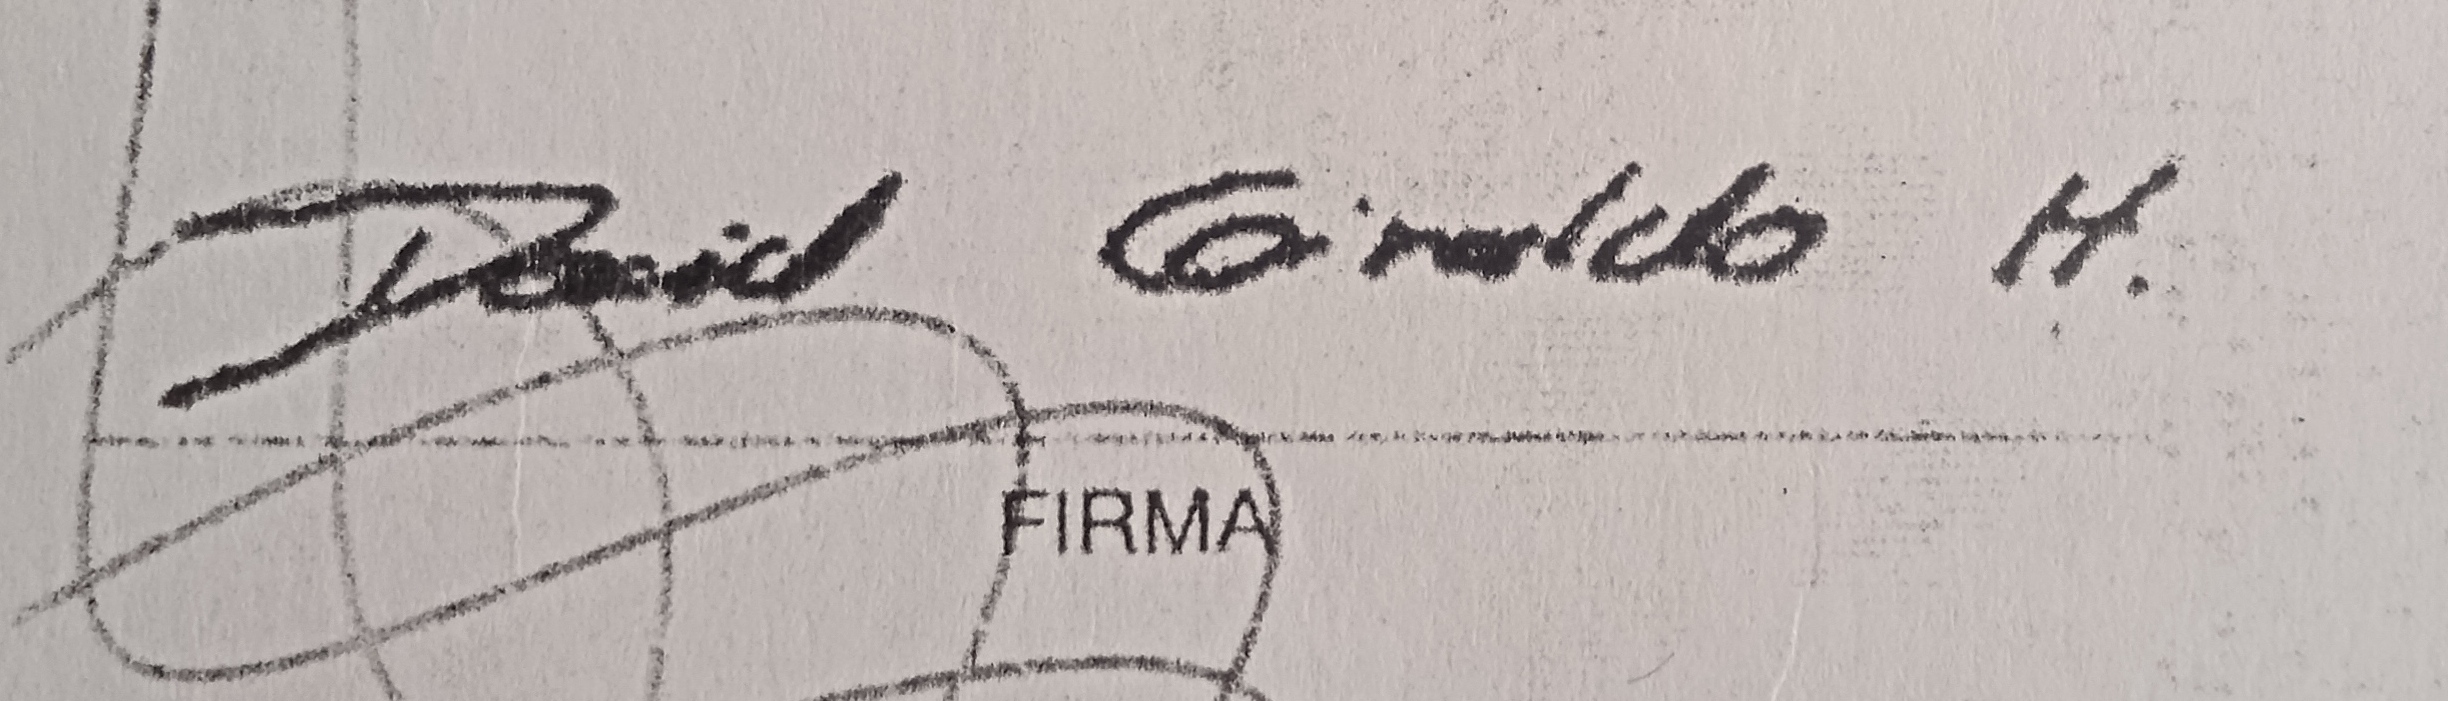 David Giraldo H.
FIRMA